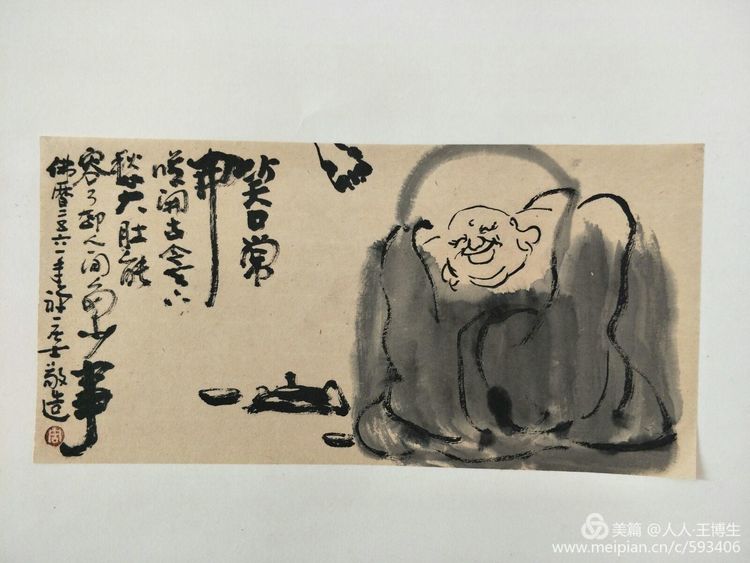 笑口常
开
古今
愁大肚能
容了却人间多少事
佛曆二五六一年禅一居士敬造
美篇 @人人·王博生
www.meipian.cn/c/593406